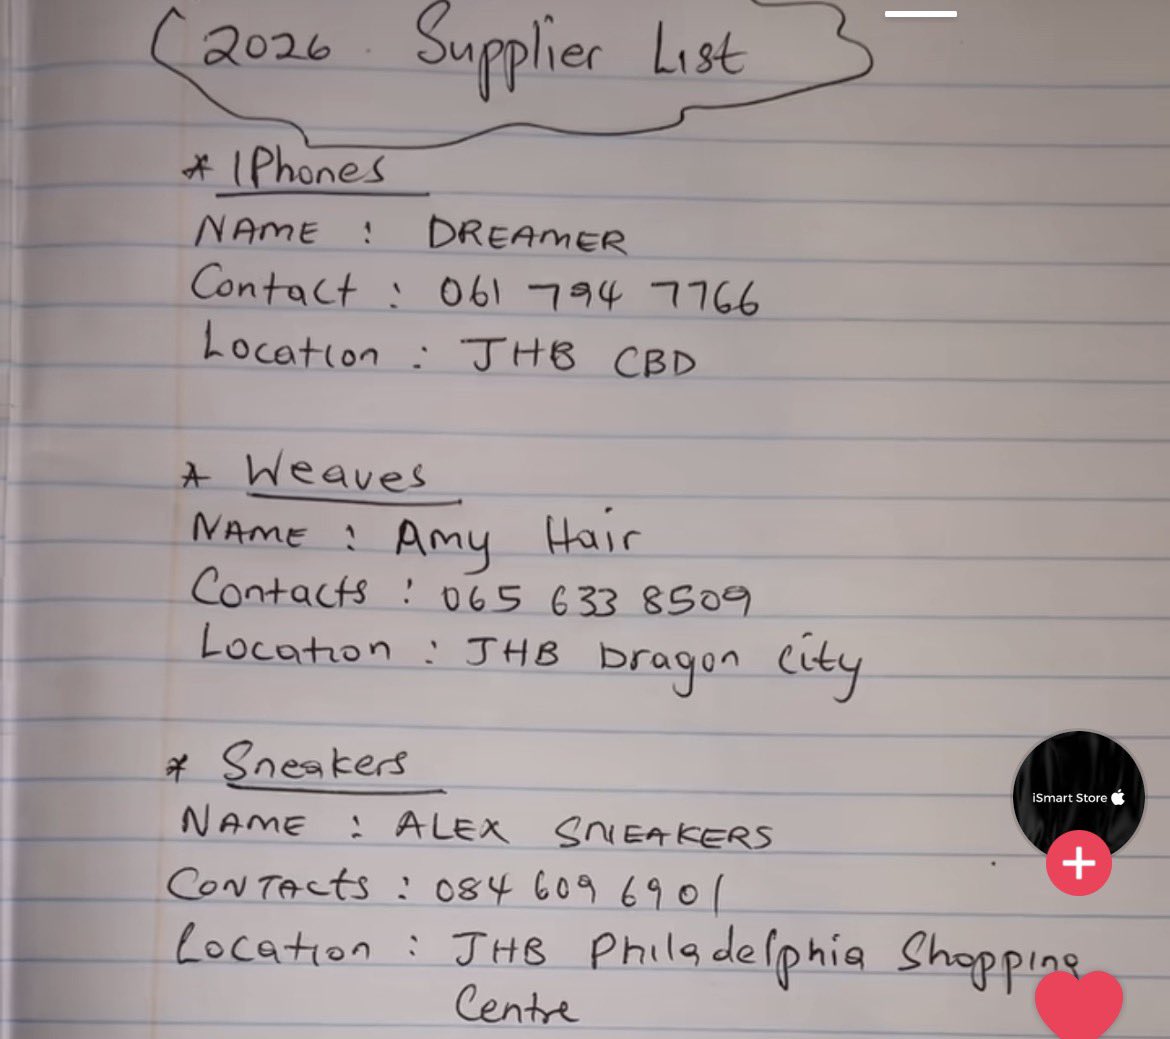 2026 Supplier List
* IPhones
NAME : DREAMER
Contact : 061 794 7766
Location : JHB CBD
* Weaves
NAME : Amy Hair
Contacts : 065 633 8509
Location : JHB Dragon City
* Sneakers
NAME : ALEX SNEAKERS
CONTActs : 084 609 6901
Location : JHB Philadelphia Shopping
Centre
iSmart Store